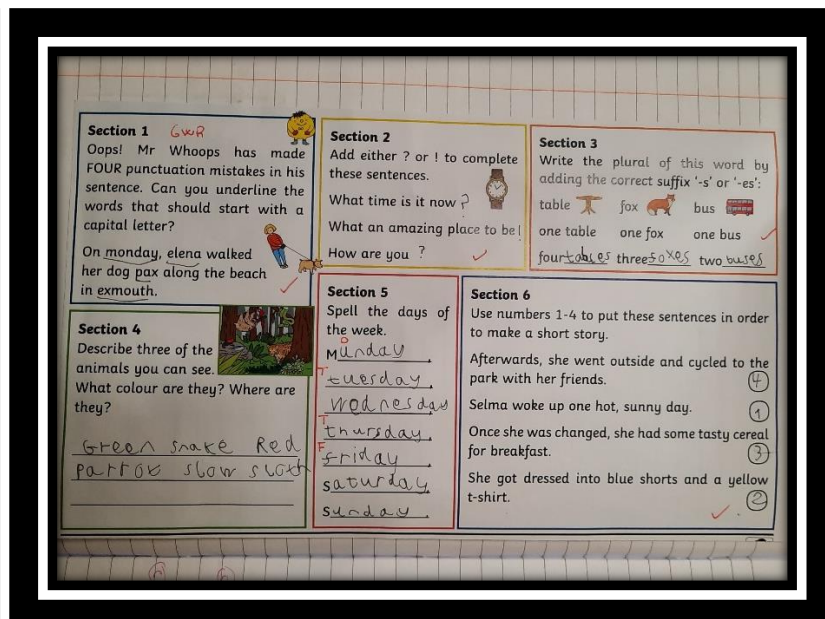 Section 1 GWR
Oops! Mr Whoops has made
FOUR punctuation mistakes in his
sentence. Can you underline the
words that should start with a
capital letter?
On monday, elena walked
her dog pax along the beach
in exmouth.
Section 2
Add either ? or ! to complete
these sentences.
What time is it now ?
What an amazing place to be!
How are you ?
Section 3
Write the plural of this word by
adding the correct suffix ‘-s’ or ‘-es’:
table fox bus
one table one fox one bus
four tables three foxes two buses
Section 4
Describe three of the
animals you can see.
What colour are they? Where are
they?
Green snake Red
parrot slow sloth
Section 5
Spell the days of
the week.
o
Munday.
T
tuesday.
wednesday
T
thursday.
F
friday.
saturday.
sunday.
Section 6
Use numbers 1-4 to put these sentences in order
to make a short story.
Afterwards, she went outside and cycled to the
park with her friends. 4
Selma woke up one hot, sunny day. 1
Once she was changed, she had some tasty cereal
for breakfast. 3
She got dressed into blue shorts and a yellow
t-shirt. 2